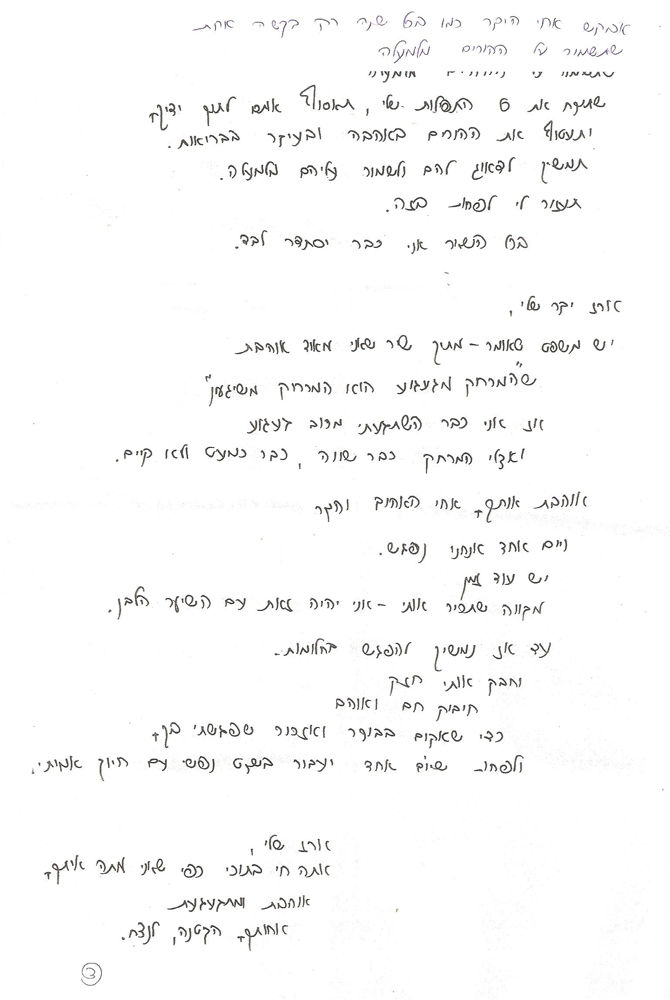 אבקש אחי היקר כמו בכל שנה רק בקשה אחת
שתשמור על ההורים מלמעלה
שתיקח את 6 התפילות שלי, תאסוף אותם לתוך ידיך
ותעטוף את ההורים באהבה ובעיקר בבריאות.
תמשיך לדאוג להם ולשמור עליהם מלמעלה.
תעזור לי לפחות בזה.
בכל השאר אני כבר יסתדר לבד.
ארז יקר שלי,
יש משפט שאומר - מתוך שיר שאני מאוד אוהבת
"שהמרחק מגעגוע הוא המרחק משיגעון"
אז אני כבר השתגעתי מרוב געגוע
ואצלי המרחק כבר שווה, כבר כמעט ולא קיים.
אוהבת אותך, אחי האהוב והיקר
ויום אחד אנחנו נפגש.
יש עוד זמן
מקווה שתכיר אותי - אני יהיה זאת עם השיער הלבן.
עד אז נמשיך להפגש בחלומות.
וחבק אותי חזק
חיבוק חם ואוהב
כדי שאקום בבוקר ואזכור שפגשתי בך
ולפחות שיום אחד יעבור בשקט נפשי עם חיוך אמיתי.
ארז שלי,
אתה חי בתוכי כפי שאני מתה איתך
אוהבת ומתגעגעת
אחותך הקטנה, לנצח.
3